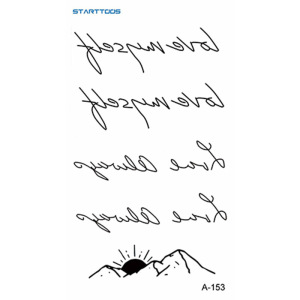 STARTTOOS
love myself
love myself
Love Always
Love Always
A-153